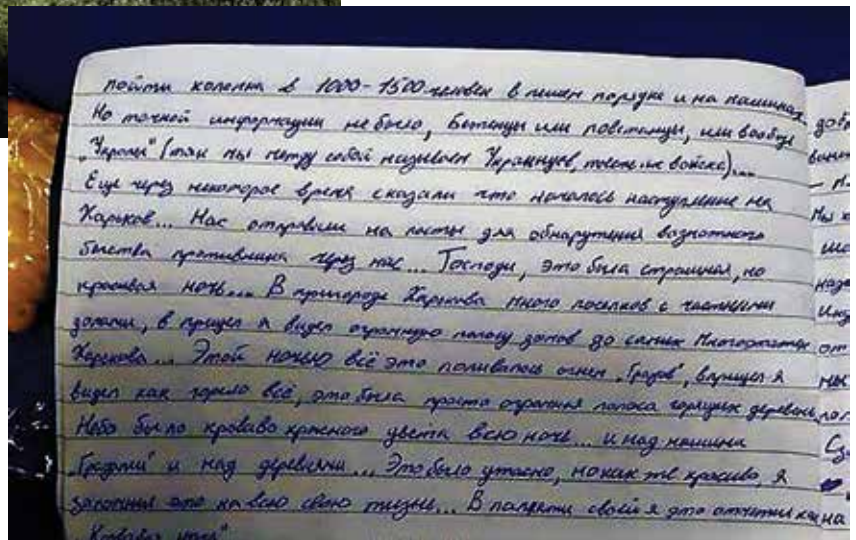 пойти колонна в 1000-1500 человек в пешем порядке и на машинах
Но точной информации не было, Беженцы или повстанцы, или вообще
„Укропы" (так мы между собой называем Украинцев, войска)...
Еще через некоторое время сказали что началось наступление на
Харьков... Нас отправили на посты для обнаружения возможного
бегства противника через нас... Господи, это была страшная, но
красивая ночь... В пригороде Харькова много поселков с частными
домами, в прицел я видел огромную полосу домов до самых Многоэтажек
Харькова... Этой ночью всё это поливалось огнем „Градов", в прицел я
видел как горело всё, это была просто огромная полоса горящих деревень
Небо было кроваво красного цвета всю ночь... и над нашими
„Градами" и над деревнями... Это было ужасно, но как же красиво, я
запомнил это на всю свою жизнь... В памяти своей я это отметил как
„Кровавая ночь"